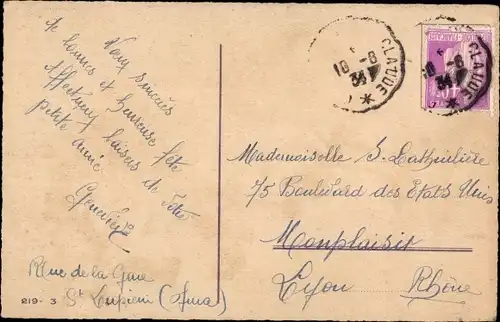 Vœux sincères
de bonne et heureuse fête
Affectueux baisers de votre
petite amie
Geneviève
Rue de la Gare
St Lupicin (Jura)
219-3
CLAUDE
18 -8
34
Mademoiselle S. Lathuilière
75 Boulevard des Etats Unis
Monplaisir
Lyon Rhône